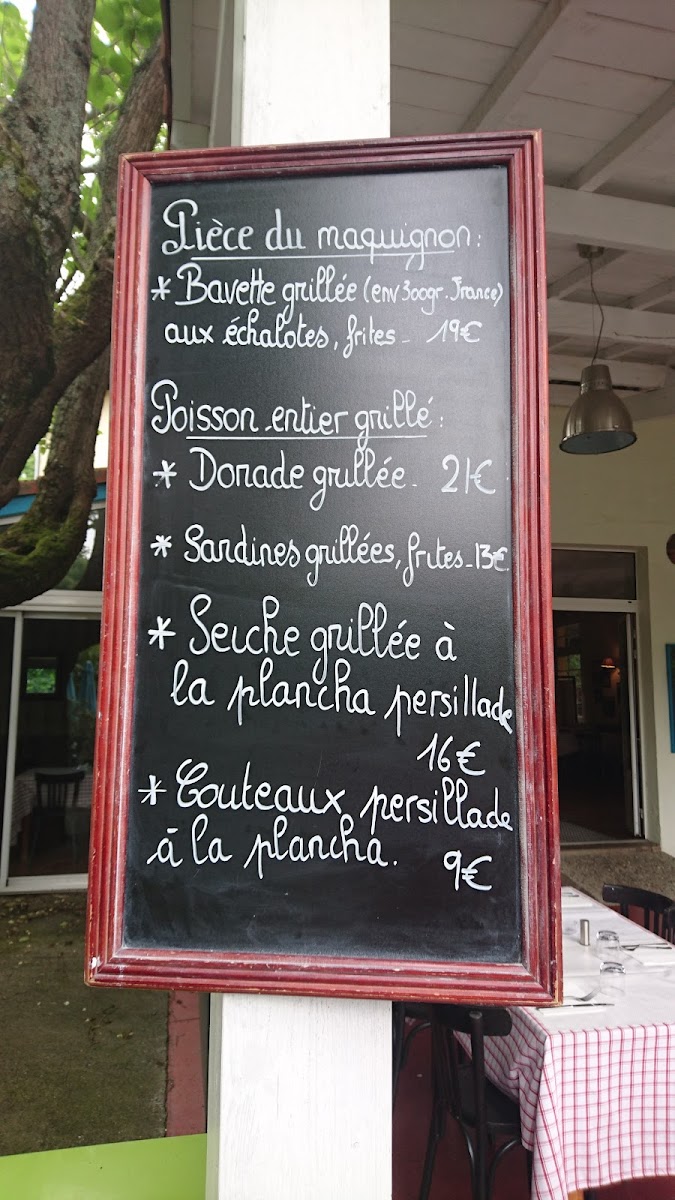 Pièce du maquignon:
* Bavette grillée (env 300gr. France)
aux échalotes, frites - 19€
Poisson entier grillé:
* Dorade grillée - 21€
* Sardines grillées, frites - 13€
* Seiche grillée à
la plancha persillade
16€
* Couteaux persillade
à la plancha. 9€